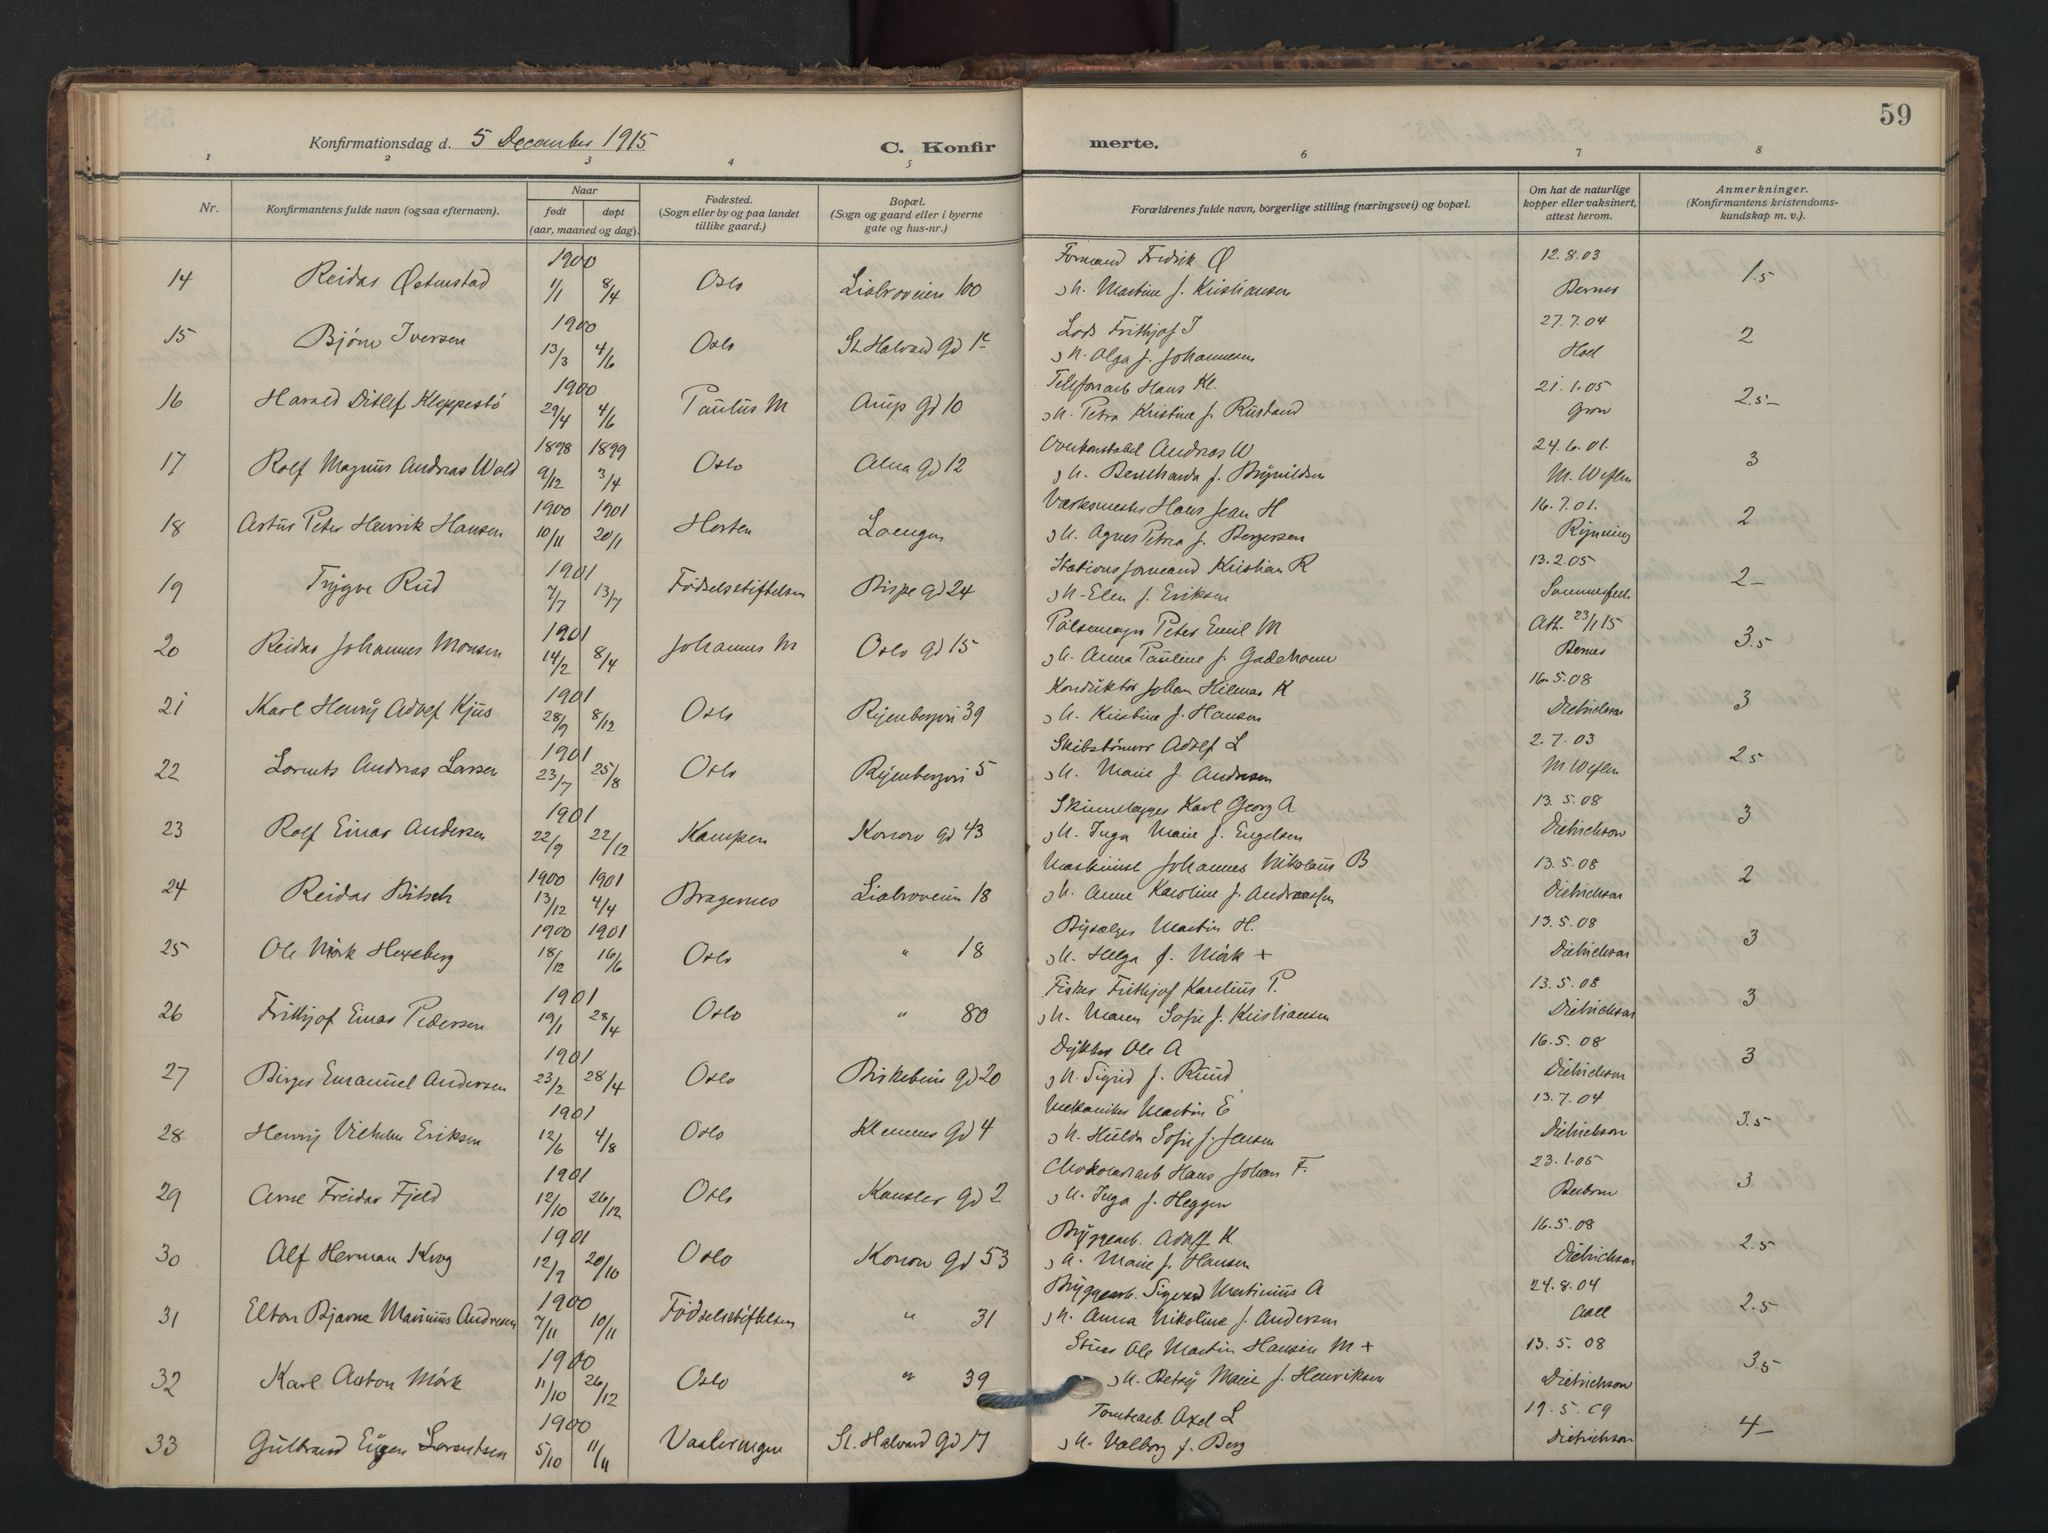 59
Konfirmationsdag d. 5 December 1915
C. Konfirmerte.
1 2 3 4 5 6 7 8
Nr.
Konfirmantens fulde navn (ogsaa efternavn).
Naar
født døpt
(aar, maaned og dag).
Fødested.
(Sogn eller by og paa landet
tillike gaard.)
Bopæl.
(Sogn og gaard eller i byerne
gate og hus-nr.)
Forældrenes fulde navn, borgerlige stilling (næringsvei) og bopæl.
Om hat de naturlige
kopper eller vaksinert,
attest herom.
Anmerkninger.
(Konfirmantens kristendoms-
kundskap m. v.)
1900 Formand Fridrik Ø 12.8.03
14 Reidar Østenstad 1/1 8/4 Oslo Liabroveien 100 & h. Martine f. Kristiansen Bernes 1.5
1900 Lods Frithjof I 27.7.04
15 Bjørn Iversen 13/3 4/6 Oslo St. Halvard gd 1c & h. Olga f. Johannesen Hoel 2
1900 Telefonarb Hans Kl. 21.1.05
16 Harald Ditlef Kleppestø 29/4 4/6 Paulus M Arup gd 10 & h. Petra Kristine f. Rustand Grøn 2.5-
1898 1899 Overkonstabel Andreas W 24.6.01.
17 Rolf Magnus Andreas Wold 9/12 3/4 Oslo Alna gd 12 & h. Bernharda f. Brynildsen M. Weflen 3
1900 1901 Værksmester Hans Jean H 16.7.01.
18 Artur Peter Henrik Hansen 10/11 20/1 Horten Loengen & h. Agnes Petra f. Bergersen Rynning 2
1901 Stationsformand Kristian R 13.2.05
19 Trygve Rud 7/7 13/7 Fødselsstiftelsen Bispe gd 24 & h. Elen f. Eriksen Sommerfeldt 2-
1901 Pølsemager Peter Emil M Att. 23/1 15
20 Reidar Johannes Monsen 14/2 8/4 Johannes M Oslo gd 15 & h. Anna Pauline f. Gadeholm Bernes 3.5
1901 Konduktør Johan Hilmar K 16.5.08
21 Karl Henry Adolf Kjus 28/9 8/12 Oslo Ryenbergvei 39 & h. Kristine f. Hansen Dietrichson 3
1901 Skibstømmr Adolf L 2.7.03
22 Lorents Andreas Larsen 23/7 25/8 Oslo Ryenbergvei 5 & h. Marie f. Andresen M Weflen 2.5
1901 Skinnelægger Karl Georg A 13.5.08
23 Rolf Einar Andersen 22/9 22/12 Kampen Konow gd 43 & h. Inga Marie f. Engelsen Dietrichson 3
1900 1901 Maskinist Johannes Nikolaus B 13.5.08
24 Reidar Bitsch 13/12 4/4 Bragernes Liabroveien 18 & h. Anne Karoline f. Andreassen Dietrichson 2
1900 1901 Bysælger Martin H. 13.5.08
25 Ole Mørk Hexeberg 18/12 16/6 Oslo " 18 & h. Helga f. Mørk + Dietrichson 3
1901 Fisker Frithjof Karelius P. 13.5.08
26 Frithjof Einar Pedersen 19/1 28/4 Oslo " 80 & h. Maren Sofie f. Kristiansen Dietrichson 3
1901 Dykker Ole A 16.5.08
27 Birger Emanuel Andersen 23/2 28/4 Oslo Birkebein gd 20 & h. Sigrid f. Ruud Dietrichson 3
1901 Mekaniker Martin E 13.7.04
28 Henry Vilhelm Eriksen 12/6 4/8 Oslo Klemens gd 4 & h. Hulda Sofie f. Jensen Dietrichson 3.5
1901 Chokoladearb Hans Johan F. 23.1.05
29 Arne Freidar Fjeld 12/10 26/12 Oslo Kansler gd 2 & h. Inga f. Heggen 3
1901 Bryggearb. Adolf K 16.5.08
30 Alf Herman Krog 12/9 20/10 Oslo Konow gd 53 & h. Marie f. Hansen Dietrichson 2.5
1900 Bryggearb. Sigvard Martinius A 24.8.04
31 Elton Bjarne Marinius Andresen 7/11 10/11 Fødselsstiftelsen " 31 & h. Anna Nikoline f. Andersen Aall 2.5
1900 Stuer Ole Martin Hansen M + 13.5.08
32 Karl Anton Mørk 11/10 26/12 Oslo " 39 & h. Betsy Marie f. Henriksen Dietrichson 3.5
1900 Tomtearb Axel L 19.5.09
33 Gulbrand Eugen Lorentsen 5/10 11/11 Vaalerengen St. Halvard gd 17 & h. Valborg f. Berg Dietrichson 4-